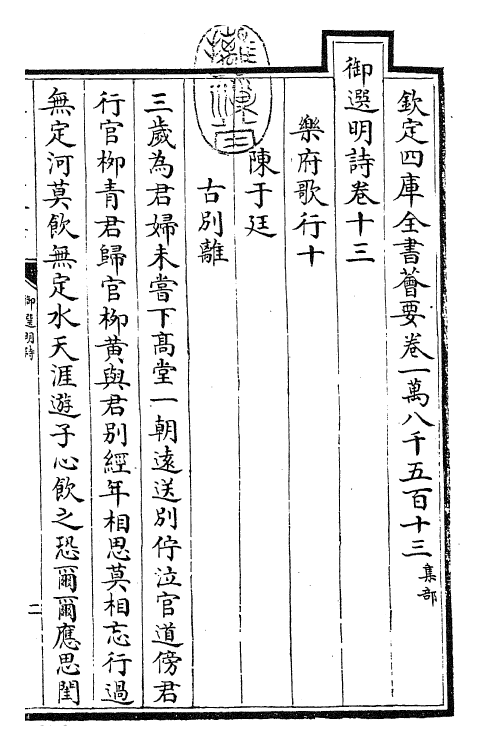 欽定四庫全書薈要卷一萬八千五百十三 集部
御選明詩卷十三
樂府歌行十
陳于廷
古別離
三歲為君婦未嘗下高堂一朝遠送別佇泣官道傍君
行官柳青君歸官柳黃與君別經年相思莫相忘行過
無定河莫飲無定水天涯遊子心飲之恐爾爾應思閨
御選明詩